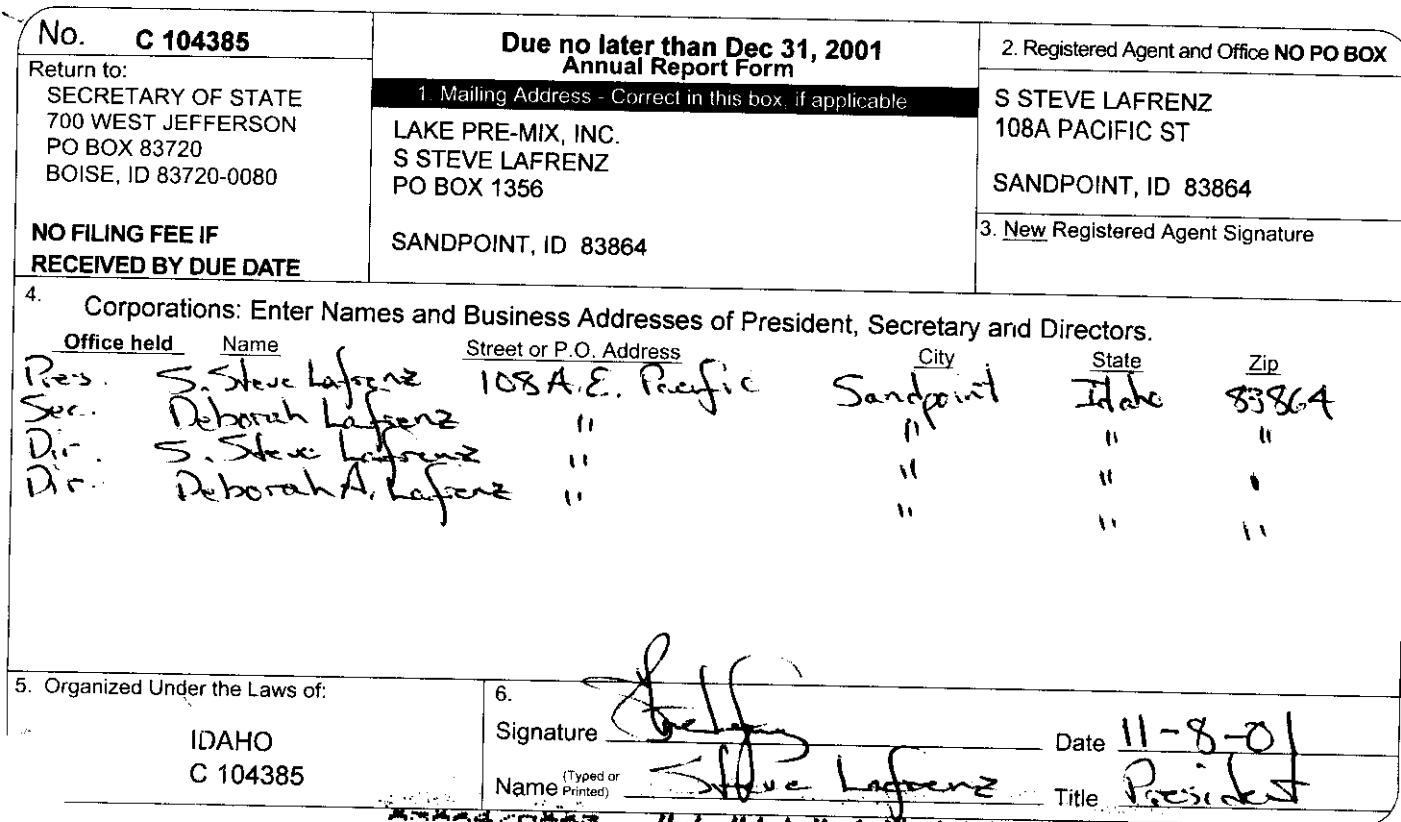 No. C 104385
Return to:
SECRETARY OF STATE
700 WEST JEFFERSON
PO BOX 83720
BOISE, ID 83720-0080
NO FILING FEE IF
RECEIVED BY DUE DATE
Due no later than Dec 31, 2001
Annual Report Form
1. Mailing Address - Correct in this box, if applicable
LAKE PRE-MIX, INC.
S STEVE LAFRENZ
PO BOX 1356
SANDPOINT, ID 83864
2. Registered Agent and Office NO PO BOX
S STEVE LAFRENZ
108A PACIFIC ST
SANDPOINT, ID 83864
3. New Registered Agent Signature
4. Corporations: Enter Names and Business Addresses of President, Secretary and Directors.
Office held Name Street or P.O. Address City State Zip
Pres. S. Steve Lafrenz 108 A. E. Pacific Sandpoint Idaho 83864
Sec. Deborah Lafrenz " " " "
Dir. S. Steve Lafrenz " " " "
Dir. Deborah A. Lafrenz " " " "
5. Organized Under the Laws of:
IDAHO
C 104385
6.
Signature Date 11-8-01
Name (Typed or Printed) Steve Lafrenz Title President